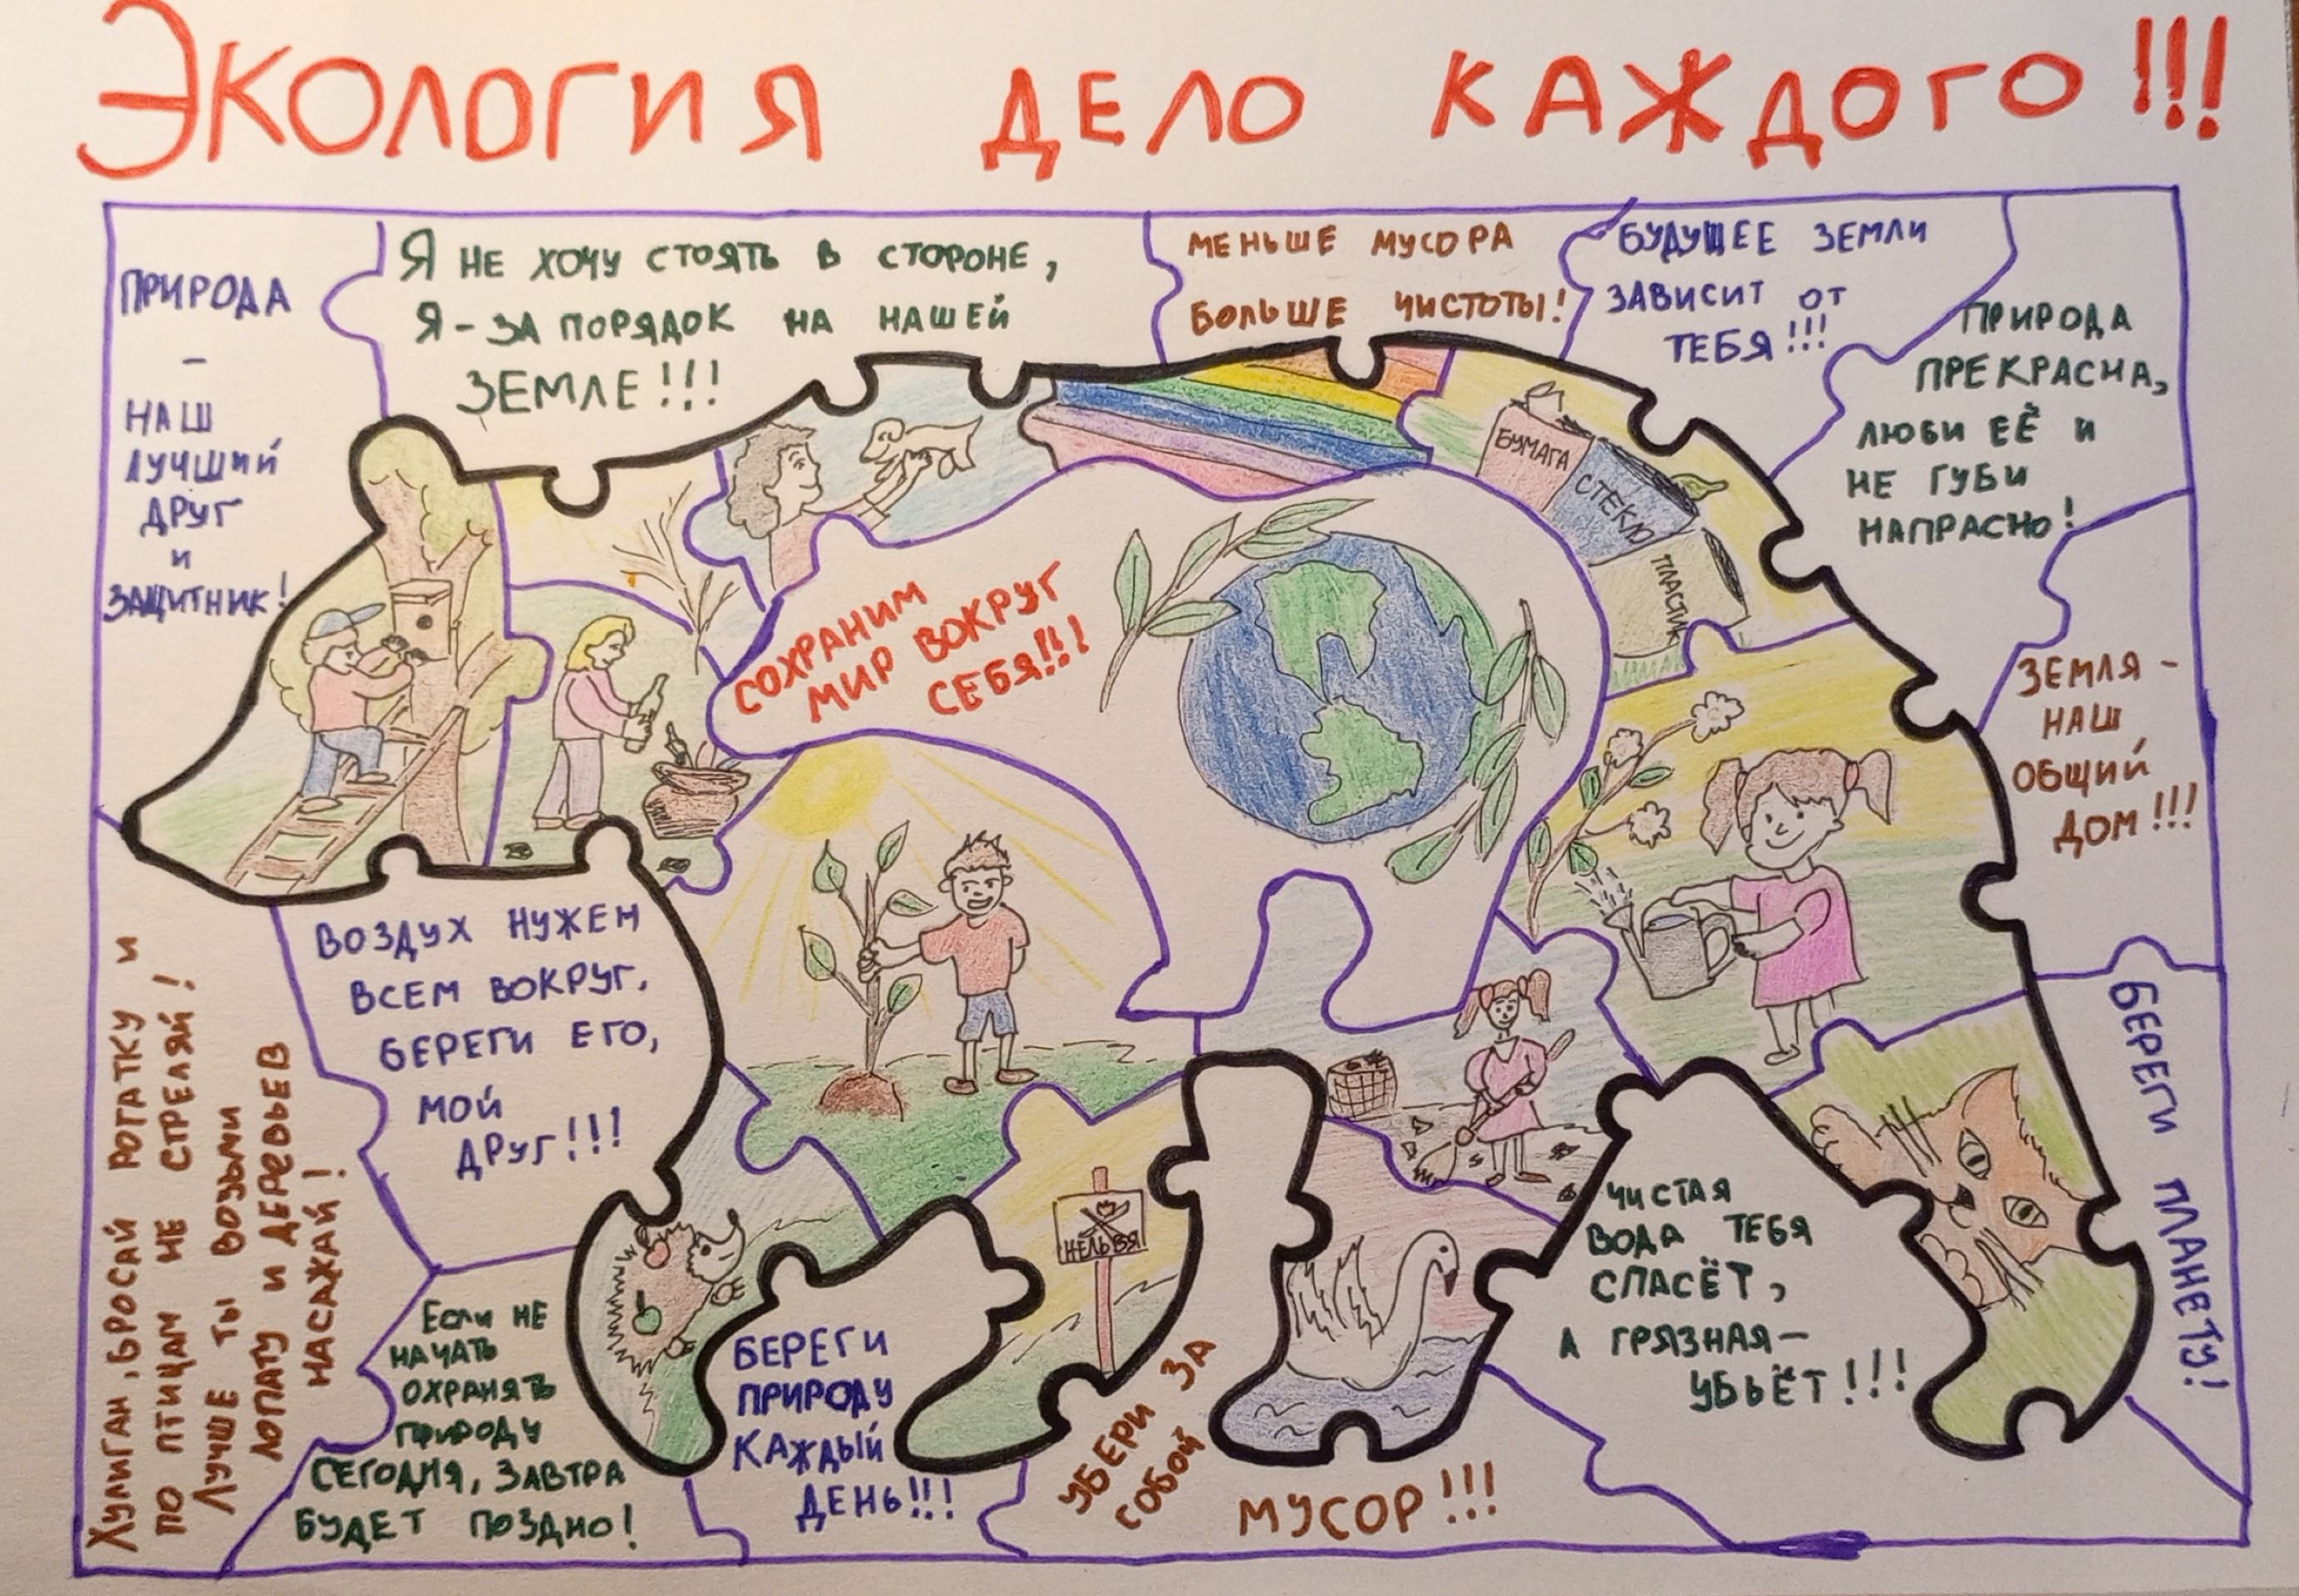 ЭКОЛОГИЯ ДЕЛО КАЖДОГО!!!
ПРИРОДА
-
НАШ
ЛУЧШИЙ
ДРУГ
И
ЗАЩИТНИК!
Я НЕ ХОЧУ СТОЯТЬ В СТОРОНЕ,
Я - ЗА ПОРЯДОК НА НАШЕЙ
ЗЕМЛЕ!!!
МЕНЬШЕ МУСОРА
БОЛЬШЕ ЧИСТОТЫ!
БУДУЩЕЕ ЗЕМЛИ
ЗАВИСИТ ОТ
ТЕБЯ!!!
ПРИРОДА
ПРЕКРАСНА,
ЛЮБИ ЕЁ И
НЕ ГУБИ
НАПРАСНО!
БУМАГА
СТЕКЛО
ПЛАСТИК
СОХРАНИМ
МИР ВОКРУГ
СЕБЯ!!!
ЗЕМЛЯ -
НАШ
ОБЩИЙ
ДОМ!!!
ХУЛИГАН, БРОСАЙ РОГАТКУ И
ПО ПТИЦАМ НЕ СТРЕЛЯЙ!
ЛУЧШЕ ТЫ ВОЗЬМИ
ЛОПАТУ И ДЕРЕВЬЕВ
НАСАЖАЙ!
ВОЗДУХ НУЖЕН
ВСЕМ ВОКРУГ,
БЕРЕГИ ЕГО,
МОЙ
ДРУГ!!!
БЕРЕГИ ПЛАНЕТУ!
НЕЛЬЗЯ
ЧИСТАЯ
ВОДА ТЕБЯ
СПАСЁТ,
А ГРЯЗНАЯ -
УБЬЁТ!!!
ЕСЛИ НЕ
НАЧАТЬ
ОХРАНЯТЬ
ПРИРОДУ
СЕГОДНЯ, ЗАВТРА
БУДЕТ ПОЗДНО!
БЕРЕГИ
ПРИРОДУ
КАЖДЫЙ
ДЕНЬ!!!
УБЕРИ ЗА
СОБОЙ
МУСОР!!!